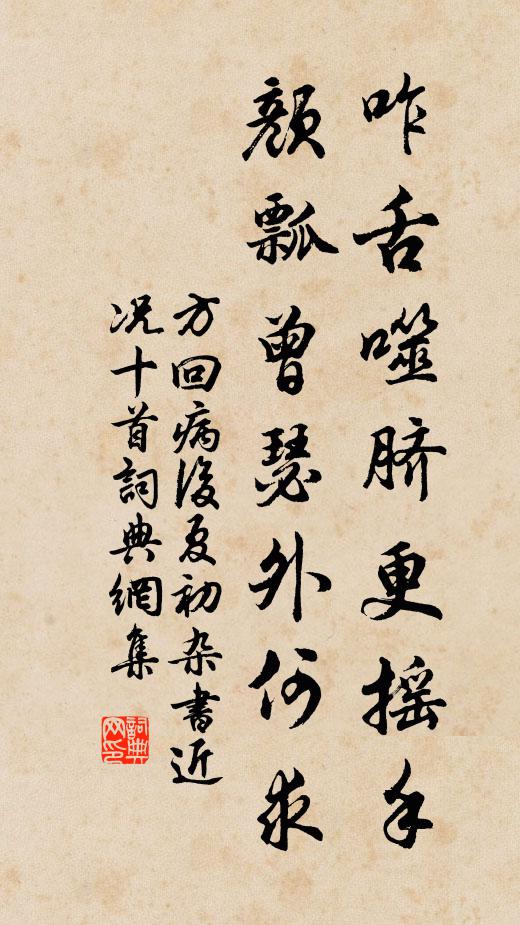 咋舌噬脐更摇手
颜瓢曾瑟外何求
方回病後夏初杂書近
况十首詞典網集
詞典网印